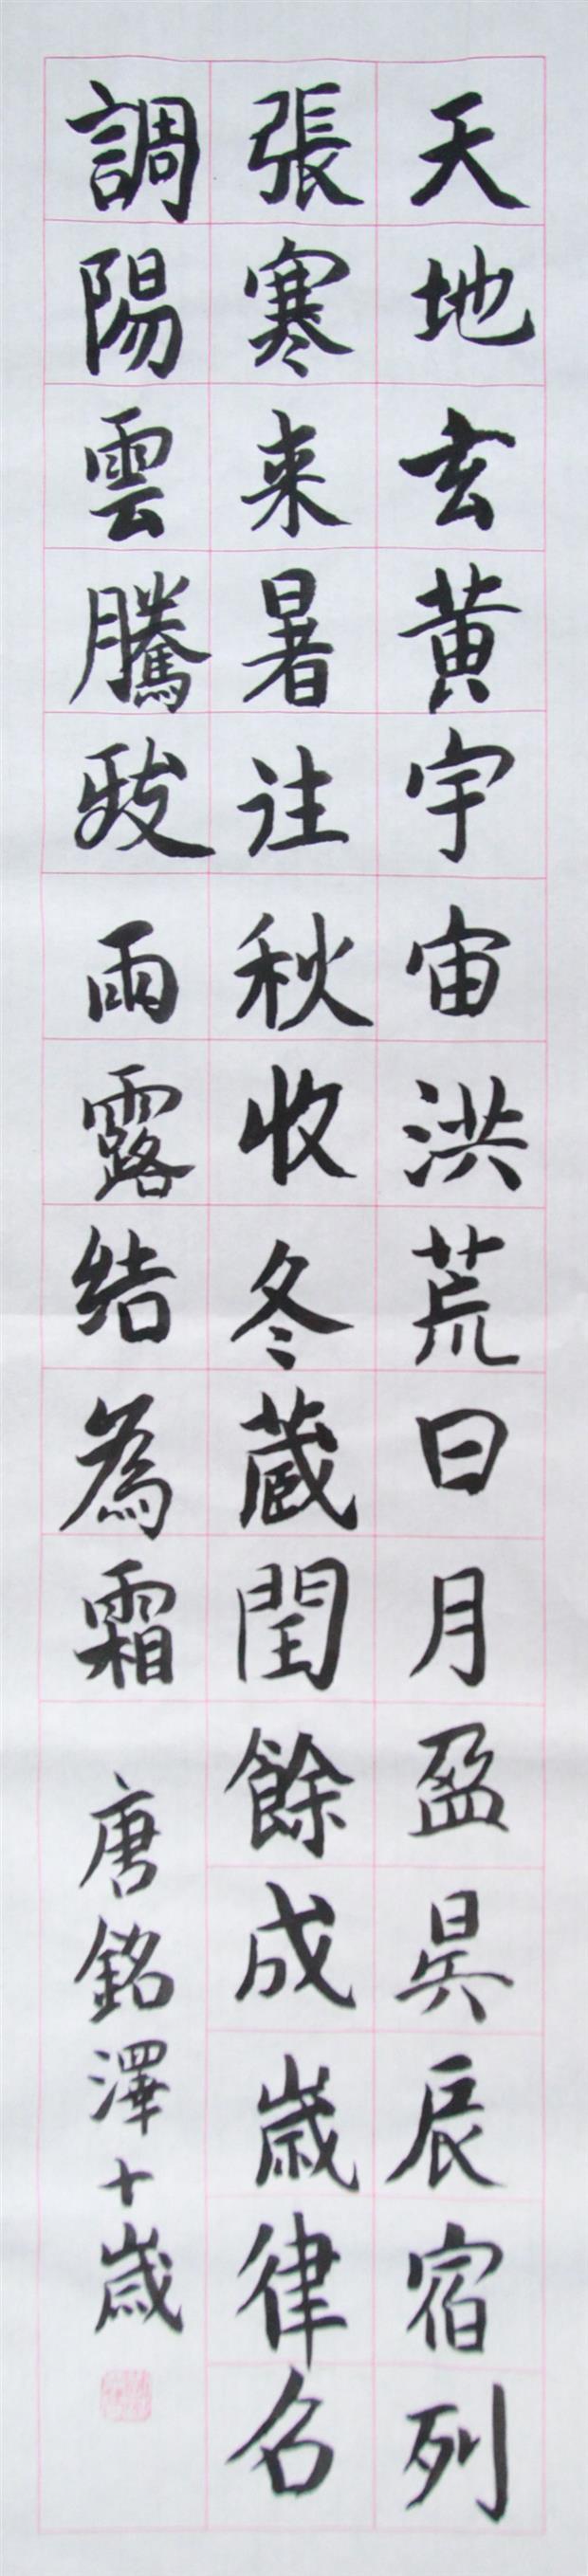 天地玄黄宇宙洪荒日月盈昃辰宿列
張寒来暑往秋收冬蔵閏餘成歳律名
調陽雲騰致雨露結為霜
唐銘澤十歳